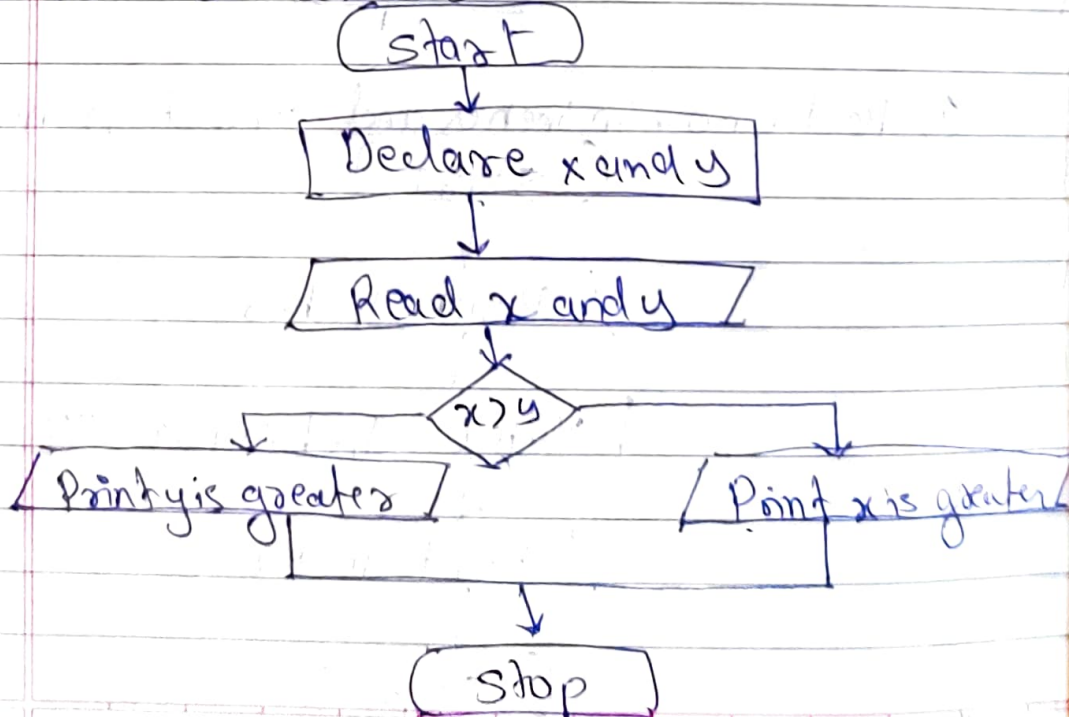 start
Declare x and y
Read x and y
x>y
Print y is greater
Print x is greater
stop